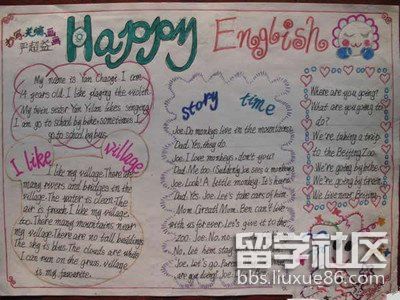 Happy English
严超益
My name is Yan Chaoyi I am
14 years old I like playing the violin
My twin sister Yan Yilan likes singing
I am go to school by bike sometimes I
go to school by bus.
I like village
I like my village. There are
many rivers and bridges in the
village. The water is clean. The
air is fresh. I like my village
too. There many mountains near
my village. There are no tall buildings
The sky is blue. The clouds are white
I can run on the grass. village
is my favourite.
story time
Joe: Do monkeys live in the mountains
Dad: Yes, they do.
Joe: I love monkeys. don't you?
Dad: Me too (Suddenly Joe sees a monkey)
Joe: Look! A little monkey. It's hurt
Dad: Yes. Joe: Let's take care of him
Mom: Great! Mom: Ben can't live
with us for ever. Let's give it to the
zoo. Joe: No. no.
No, let him stay
are my
Joe: Let's go.
Where are you going?
What are you going to
do?
We're taking a trip
to the Beijing Zoo.
We're going by bike.
We're going by train.
We live next
留学社区
bbs.liuxue86.com